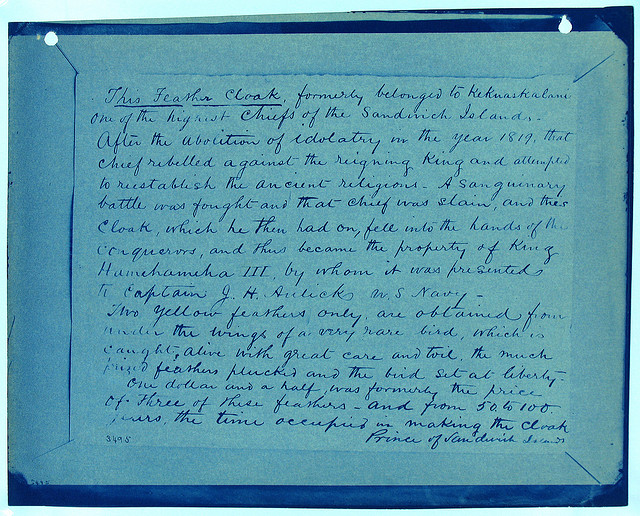 This Feather Cloak, formerly belonged to Kekuaskalani
One of the highest Chiefs of the Sandwich Islands.
After the abolition of idolatry in the year 1819, that
Chief rebelled against the reigning King and attempted
to reestablish the ancient religions - A Sanguinary
battle was fought and that Chief was slain, and this
Cloak, which he then had on, fell into the hands of the
Conquerors, and thus became the property of King
Hamehameha III, by whom it was presented
to Captain J. H. Aulick, U.S Navy -
Two yellow feathers only, are obtained from
under the wings of a very rare bird, which is
caught, alive with great care and toil, the much
prized feathers plucked and the bird set at liberty-
One dollar and a half, was formerly the price
Of three of these feathers - and from 50 to 100.
years, the time occupied in making the Cloak
3495 Prince of Sandwich Islands